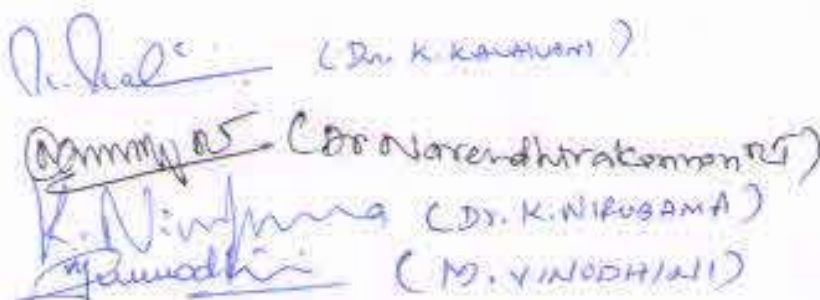 K. Kalai (Dr. K. KALAIVANI)
(Dr Narendhirakannan RT)
K. Nirupama (Dr. K. NIRUBAMA)
(M. VINODHINI)